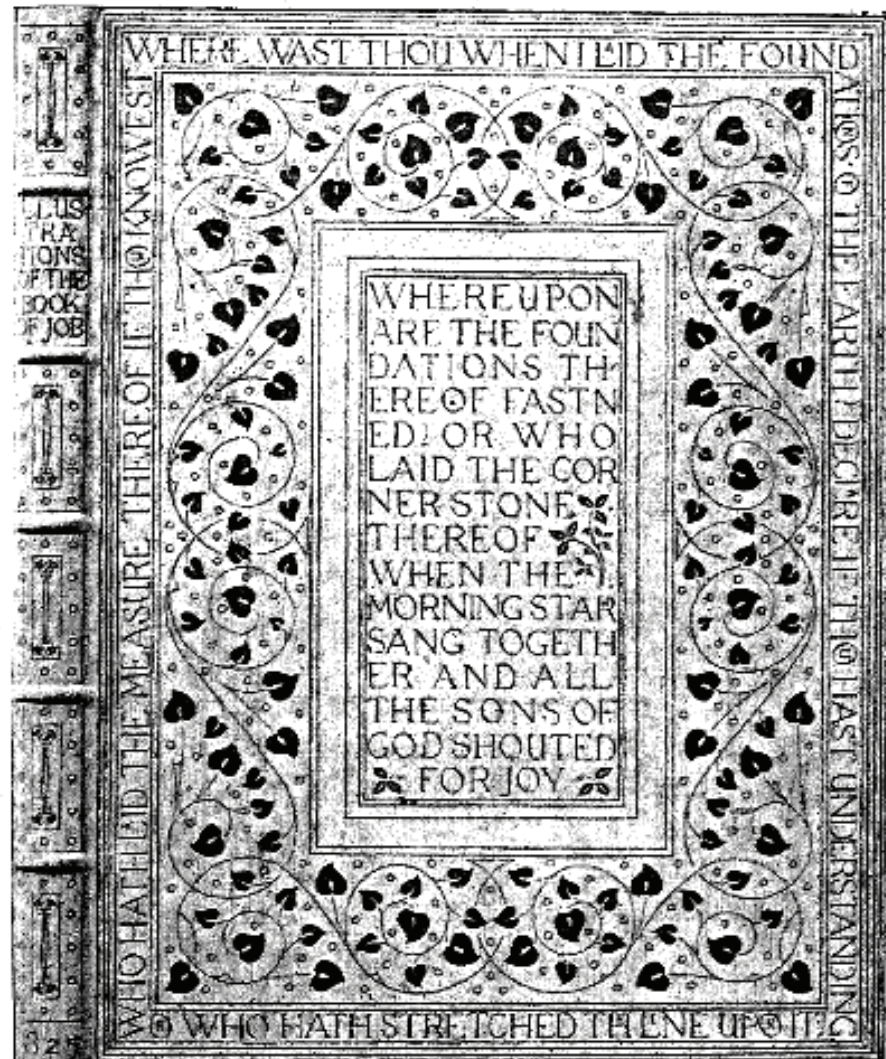 ILLUS
TRA
TIONS
OF THE
BOOK
OF JOB
825
WHERE WAST THOU WHEN I LAID THE FOUND
ATIONS OF THE EARTH DECLARE IF THOU HAST UNDERSTANDING
WHO HATH LAID THE MEASURE THEREOF IF THOU KNOWEST
OR WHO HATH STRETCHED THE LINE UPON IT
WHEREUPON
ARE THE FOUN
DATIONS TH
EREOF FASTN
ED: OR WHO
LAID THE COR
NER·STONE
THEREOF
WHEN THE
MORNING STAR
SANG TOGETH
ER AND ALL
THE SONS OF
GOD SHOUTED
FOR JOY